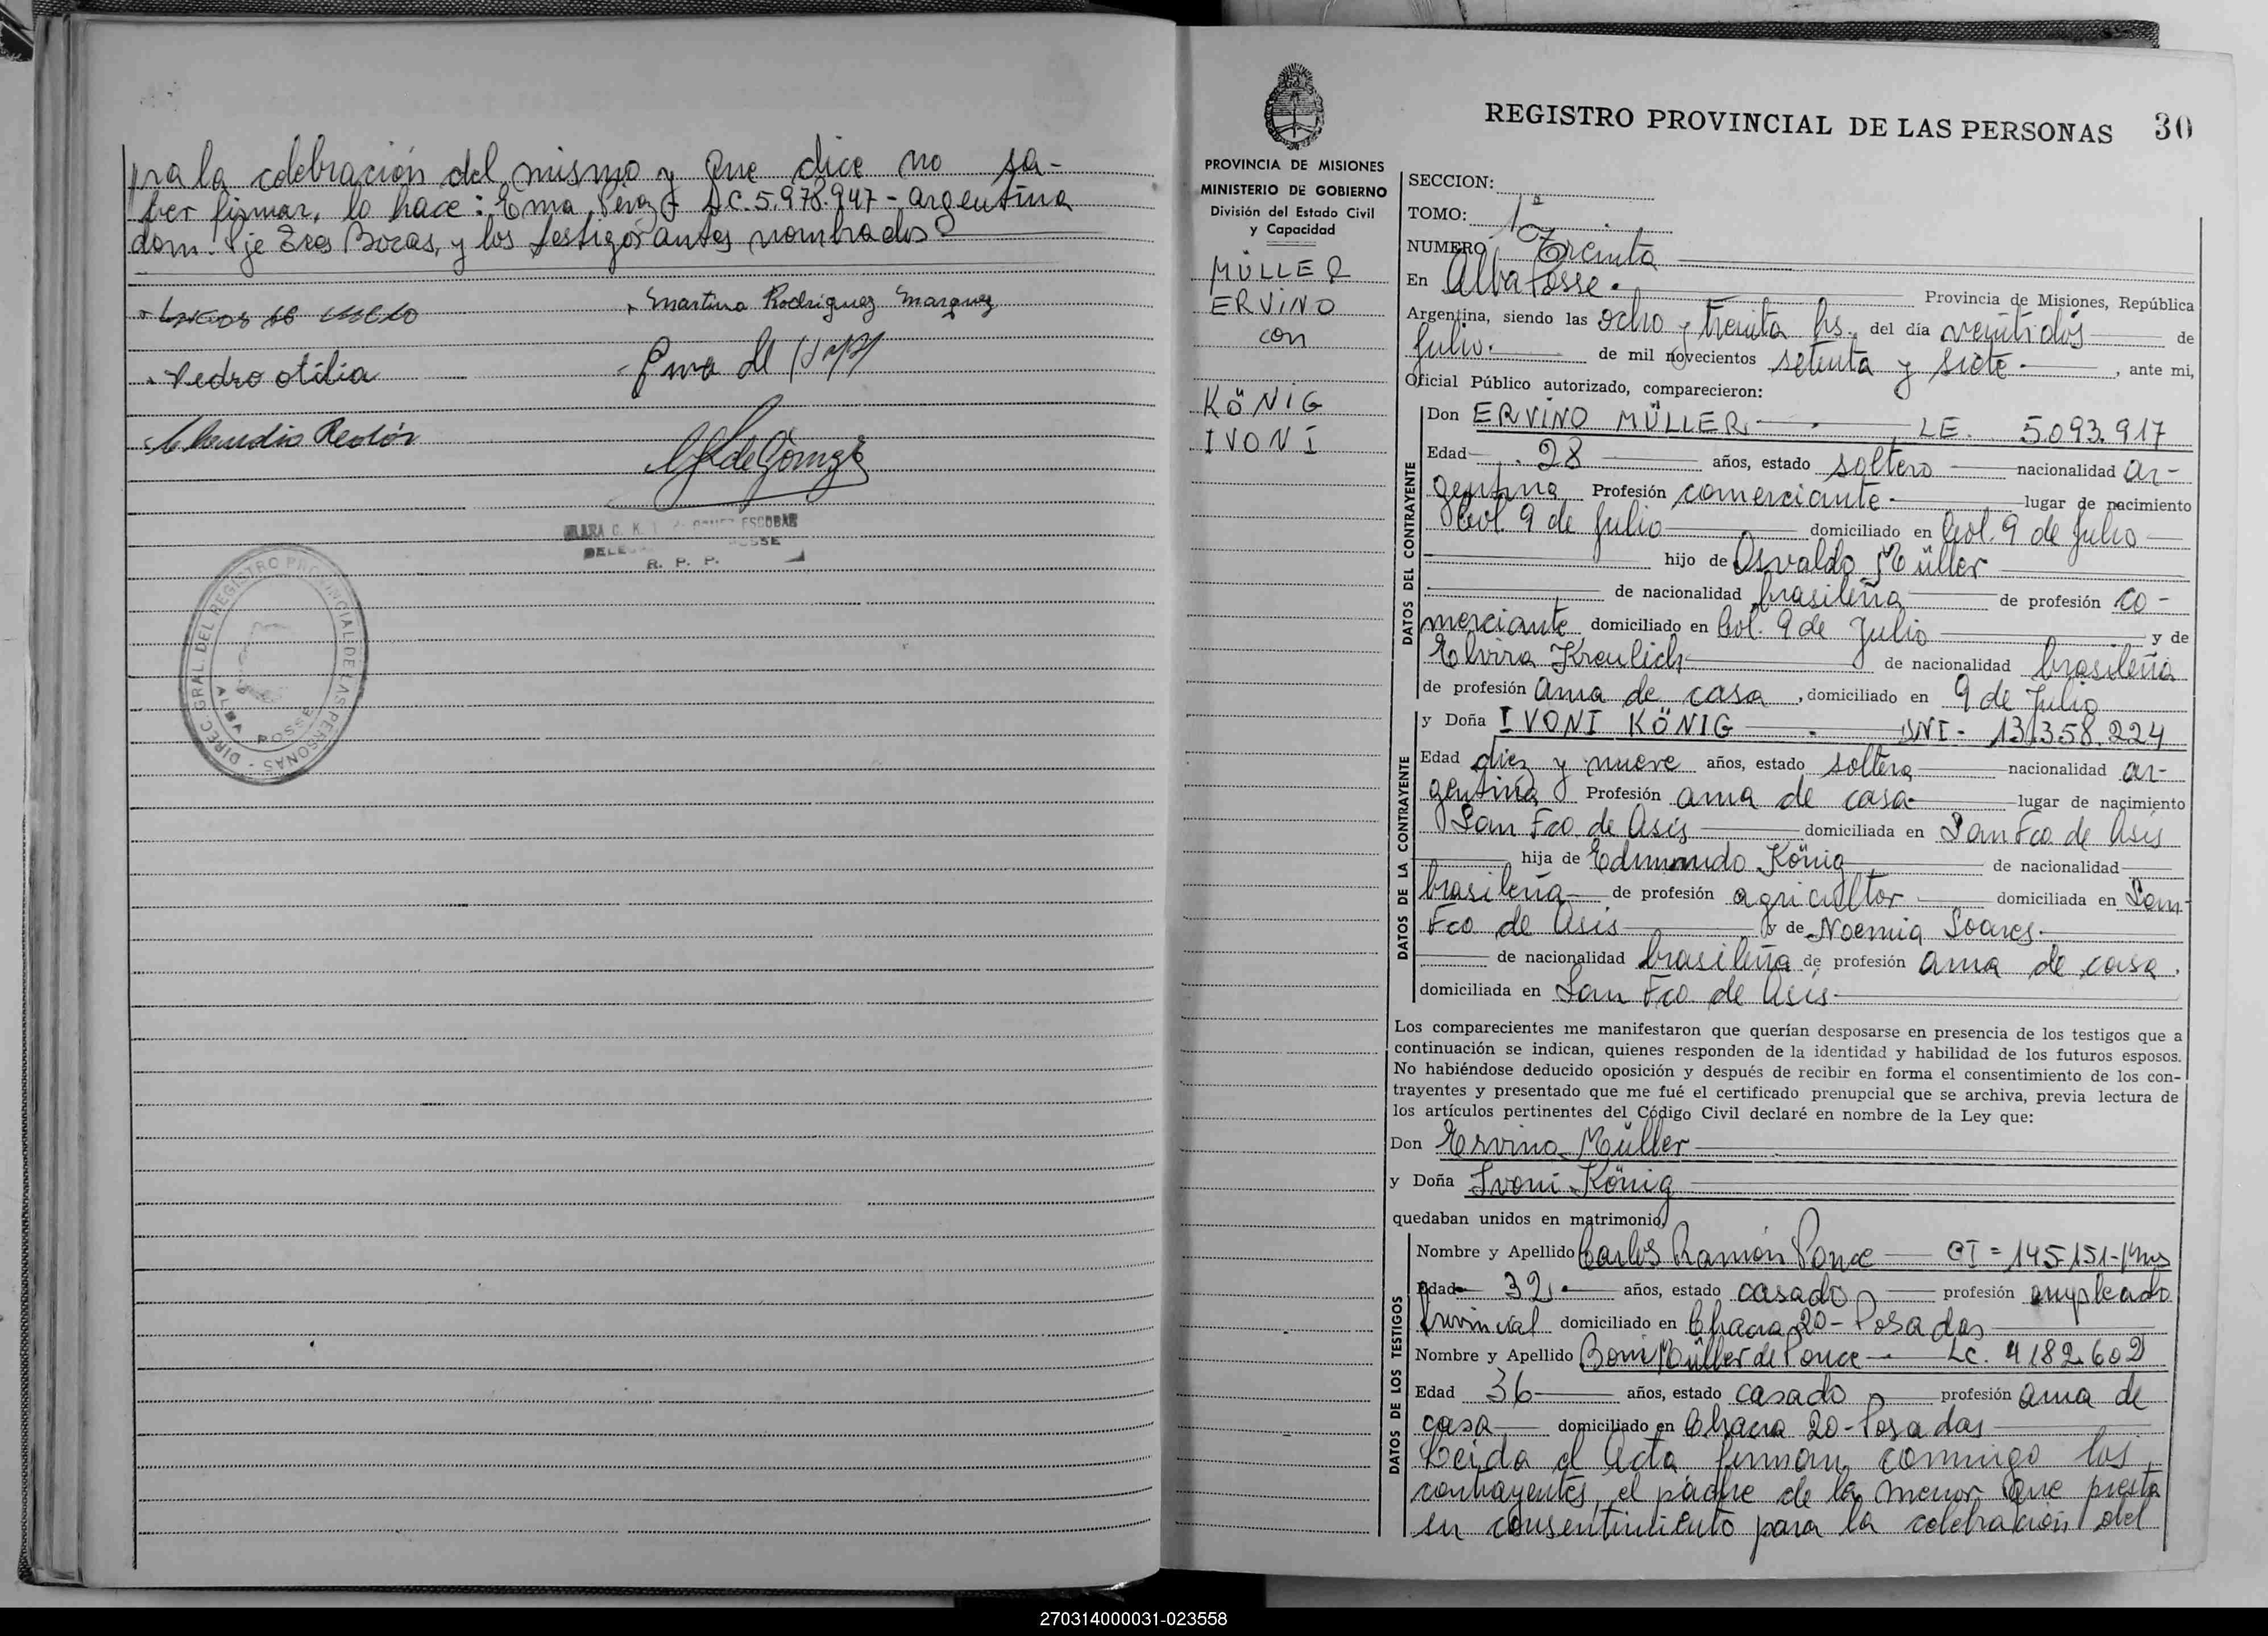 pra la celebración del mismo y que dice no sa-
ber firmar, lo hace: Ema Pérez L.C. 5.978.947 - argentina
dom. Pje Tres Bocas, y los testigos antes nombrados
Martina Rodriguez Marquez
Pedro otilia
Ema de
R. P. P.
DIREC. GRAL. DEL REGISTRO PROVINCIAL DE LAS PERSONAS -
ALBA POSSE
PROVINCIA DE MISIONES
MINISTERIO DE GOBIERNO
División del Estado Civil
y Capacidad
MÜLLER
ERVINO
con
KÖNIG
IVONÍ
REGISTRO PROVINCIAL DE LAS PERSONAS 30
SECCION:
TOMO: 1º
NUMERO Treinta
En Alba Posse. Provincia de Misiones, República
Argentina, siendo las ocho y treinta hs. del día veintidós de
Julio. de mil novecientos setenta y siete , ante mi,
Oficial Público autorizado, comparecieron:
DATOS DEL CONTRAYENTE
Don ERVINO MÜLLER. LE. 5.093.917
Edad 28 años, estado soltero nacionalidad ar-
gentina Profesión comerciante lugar de nacimiento
Col. 9 de Julio domiciliado en Col. 9 de Julio
hijo de Osvaldo Müller
de nacionalidad brasileña de profesión co-
merciante domiciliado en Col. 9 de Julio y de
Elvira Kreulich de nacionalidad brasileña
de profesión ama de casa , domiciliado en 9 de Julio
DATOS DE LA CONTRAYENTE
y Doña IVONI KÖNIG DNI - 13.358.224
Edad diez y nueve años, estado soltera nacionalidad ar-
gentina Profesión ama de casa lugar de nacimiento
San Fco de Asís domiciliada en San Fco. de Asís
hija de Edmundo König de nacionalidad
brasileña de profesión agricultor domiciliada en San
Fco de Asís y de Noemia Soares.
de nacionalidad brasileña de profesión ama de casa.
domiciliada en San Fco. de Asís
Los comparecientes me manifestaron que querían desposarse en presencia de los testigos que a
continuación se indican, quienes responden de la identidad y habilidad de los futuros esposos.
No habiéndose deducido oposición y después de recibir en forma el consentimiento de los con-
trayentes y presentado que me fué el certificado prenupcial que se archiva, previa lectura de
los artículos pertinentes del Código Civil declaré en nombre de la Ley que:
Don Ervino Müller
y Doña Ivoni König
quedaban unidos en matrimonio.
DATOS DE LOS TESTIGOS
Nombre y Apellido Carlos Ramón Ponce CI = 145.151 - Mnes
Edad 32 años, estado casado profesión empleado
provincial domiciliado en Chacra 20 - Posadas
Nombre y Apellido Boni Müller de Ponce Lc. 4182.602
Edad 36 años, estado casado profesión ama de
casa domiciliado en Chacra 20 - Posadas
Leida el Acta firman conmigo los
contrayentes, el padre de la menor que presta
su consentimiento para la celebración del
270314000031-023558